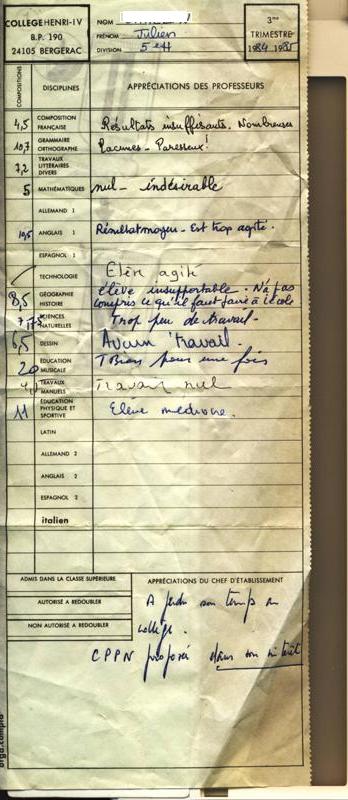 COLLEGE HENRI-IV
B.P. 190
24105 BERGERAC
NOM
PRÉNOM Julien
DIVISION 5 e H
3me
TRIMESTRE
1984 1985
COMPOSITIONS
DISCIPLINES
APPRÉCIATIONS DES PROFESSEURS
4,5 COMPOSITION FRANÇAISE Résultats insuffisants. Nombreuses
10,7 GRAMMAIRE ORTHOGRAPHE Lacunes - Paresseux!
7,2 TRAVAUX LITTÉRAIRES DIVERS
5 MATHÉMATIQUES nul - indésirable
ALLEMAND 1
10,5 ANGLAIS 1 Résultat moyen - Est trop agité.
ESPAGNOL 1
TECHNOLOGIE Elève agité
8,5 GÉOGRAPHIE HISTOIRE élève insupportable. N'a pas
compris ce qu'il faut faire à l'école
SCIENCES NATURELLES Trop peu de travail -
6,5 DESSIN Aucun travail.
20 ÉDUCATION MUSICALE T Bien pour une fois
TRAVAUX MANUELS Travail nul
11 ÉDUCATION PHYSIQUE ET SPORTIVE Elève médiocre.
LATIN
ALLEMAND 2
ANGLAIS 2
ESPAGNOL 2
italien
ADMIS DANS LA CLASSE SUPÉRIEURE
AUTORISÉ A REDOUBLER
NON AUTORISÉ A REDOUBLER
APPRÉCIATIONS DU CHEF D'ÉTABLISSEMENT
A perdu son temps au
collège.
CPPN proposée dans son intérêt